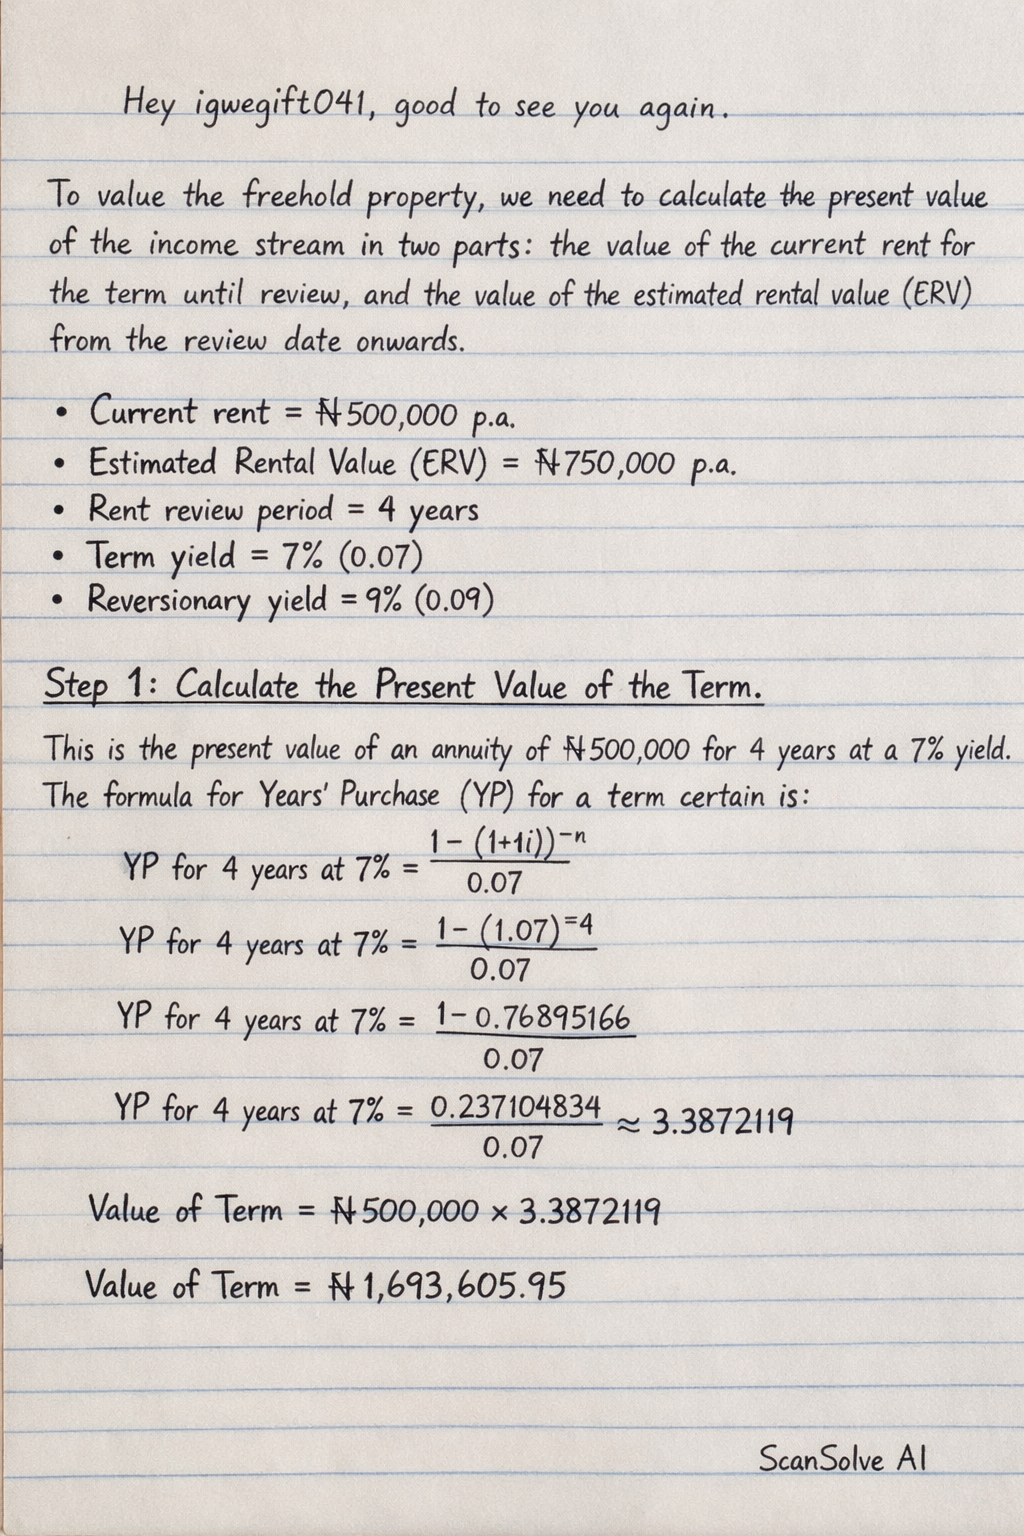 Hey igwegift041, good to see you again.
To value the freehold property, we need to calculate the present value
of the income stream in two parts: the value of the current rent for
the term until review, and the value of the estimated rental value (ERV)
from the review date onwards.
• Current rent = ₦500,000 p.a.
• Estimated Rental Value (ERV) = ₦750,000 p.a.
• Rent review period = 4 years
• Term yield = 7% (0.07)
• Reversionary yield = 9% (0.09)
Step 1: Calculate the Present Value of the Term.
This is the present value of an annuity of ₦500,000 for 4 years at a 7% yield.
The formula for Years' Purchase (YP) for a term certain is:
YP for 4 years at 7% = 1 - (1+1i))⁻ⁿ / 0.07
YP for 4 years at 7% = 1 - (1.07)⁼⁴ / 0.07
YP for 4 years at 7% = 1 - 0.76895166 / 0.07
YP for 4 years at 7% = 0.237104834 / 0.07 ≈ 3.3872119
Value of Term = ₦500,000 × 3.3872119
Value of Term = ₦1,693,605.95
ScanSolve AI